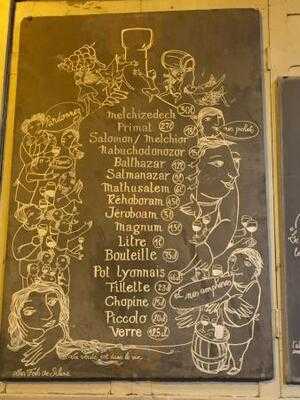 Pardonnez
melchizedech 30l
Primat 27l
un patel
Salomon / Melchior 18l
Nabuchodonozor 15l
Balthazar 12l
Salmanazar 9l
Mathusalem 6l
Rehoboram 4.5l
Jeroboam 3l
Magnum 1.5l
Litre 1l
Bouteille 75cl
Pot Lyonnais 46cl
Fillette
Chopine
et nos amphores
Piccolo 20cl
Verre 12.5cl
La vérité est dans le vin